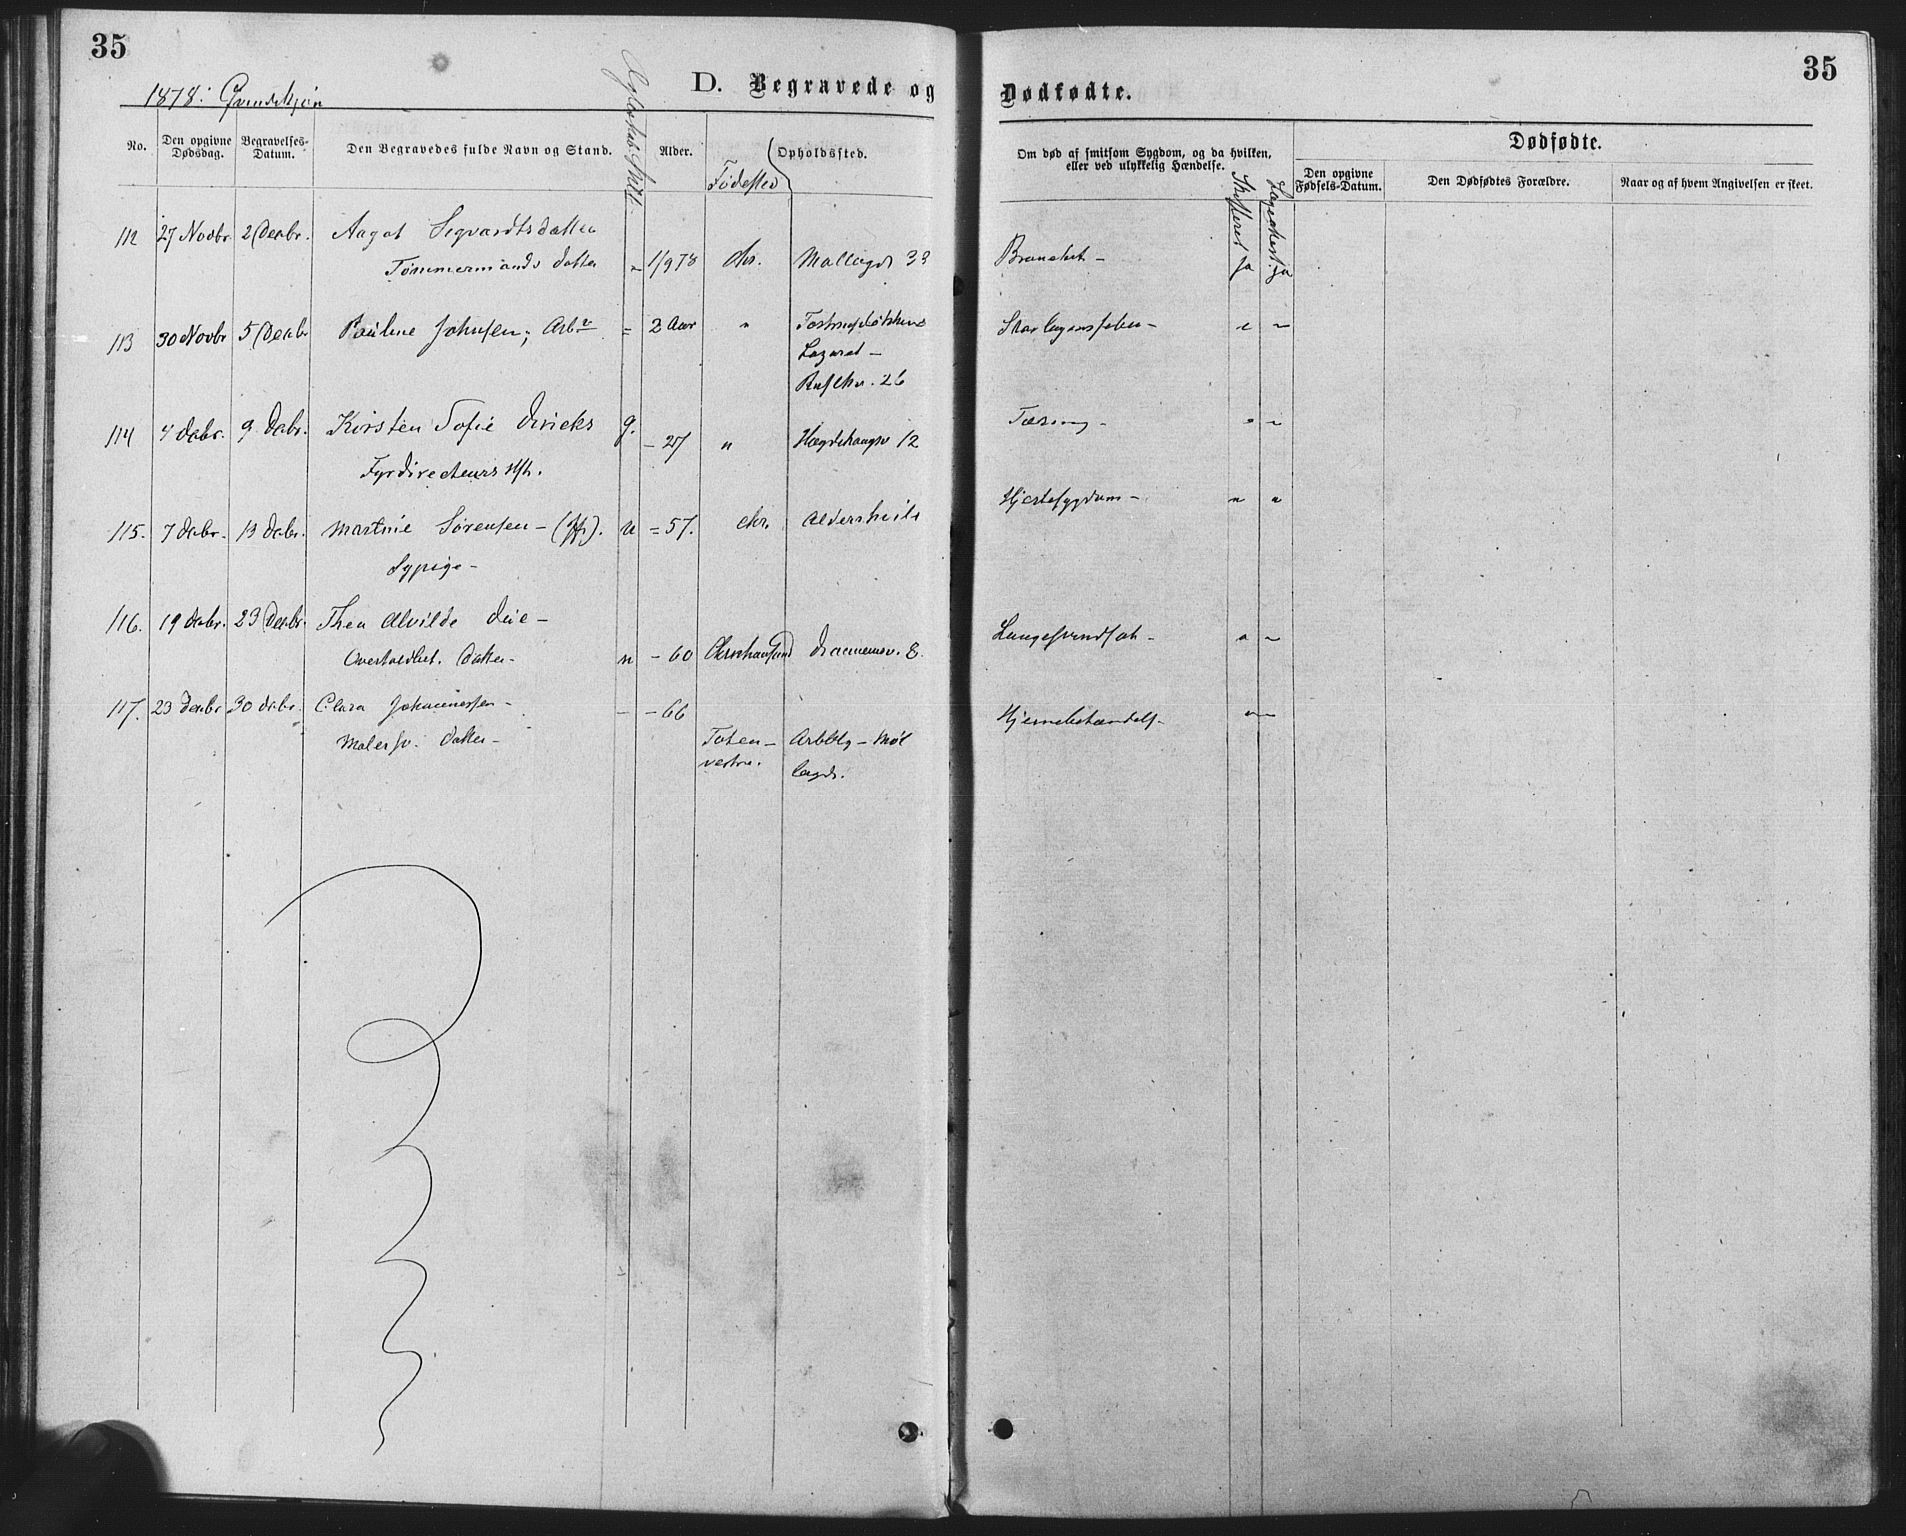 35
35
1878. Qvindekjøn
D. Begravede og
Dødfødte.
No.
Den opgivne Dødsdag.
Begravelses-Datum.
Den Begravedes fulde Navn og Stand.
Alder.
Fødested
Opholdssted.
Om død af smitsom Sygdom, og da hvilken,
eller ved ulykkelig Hændelse.
Skifteret
Lægeattest
Dødfødte.
Den opgivne Fødsels-Datum.
Den Dødfødtes Forældre.
Naar og af hvem Angivelsen er skeet.
112 27 Novbr. 2 Decbr. Aagot Sigvardtsdatter
Tømmermands datter " 1/9 78 Chr. Møllegd 33 Bronchit - ja ja
113 30 Novbr 5 Decbr Pauline Johnsen; Arb = 2 Aar "
Lazaret -
26
Skarlagensfeber - " "
114 4 Decbr. 9 Decbr. Kirsten Sofie Diricks g. - 27 " Hægdehaugsv 12 Tæring - " "
Fyrdirecteurs
115. 7 Decbr. 13 Decbr. Martine Sørensen - u = 57. Chr. Aldershvile Hjertesygdom - " "
Sypige -
116. 19 Decbr. 23 Decbr. Thea Alvilde
Overtoldbet. Datter - u - 60 Christiansand Drammensv. 8. Lungesvindsot - " "
117. 23 Decbr 30 Decbr. Clara Johannessen - - - 66 Hjernebetændelse - " "
Malersv. Datter -
Toten - vestre.